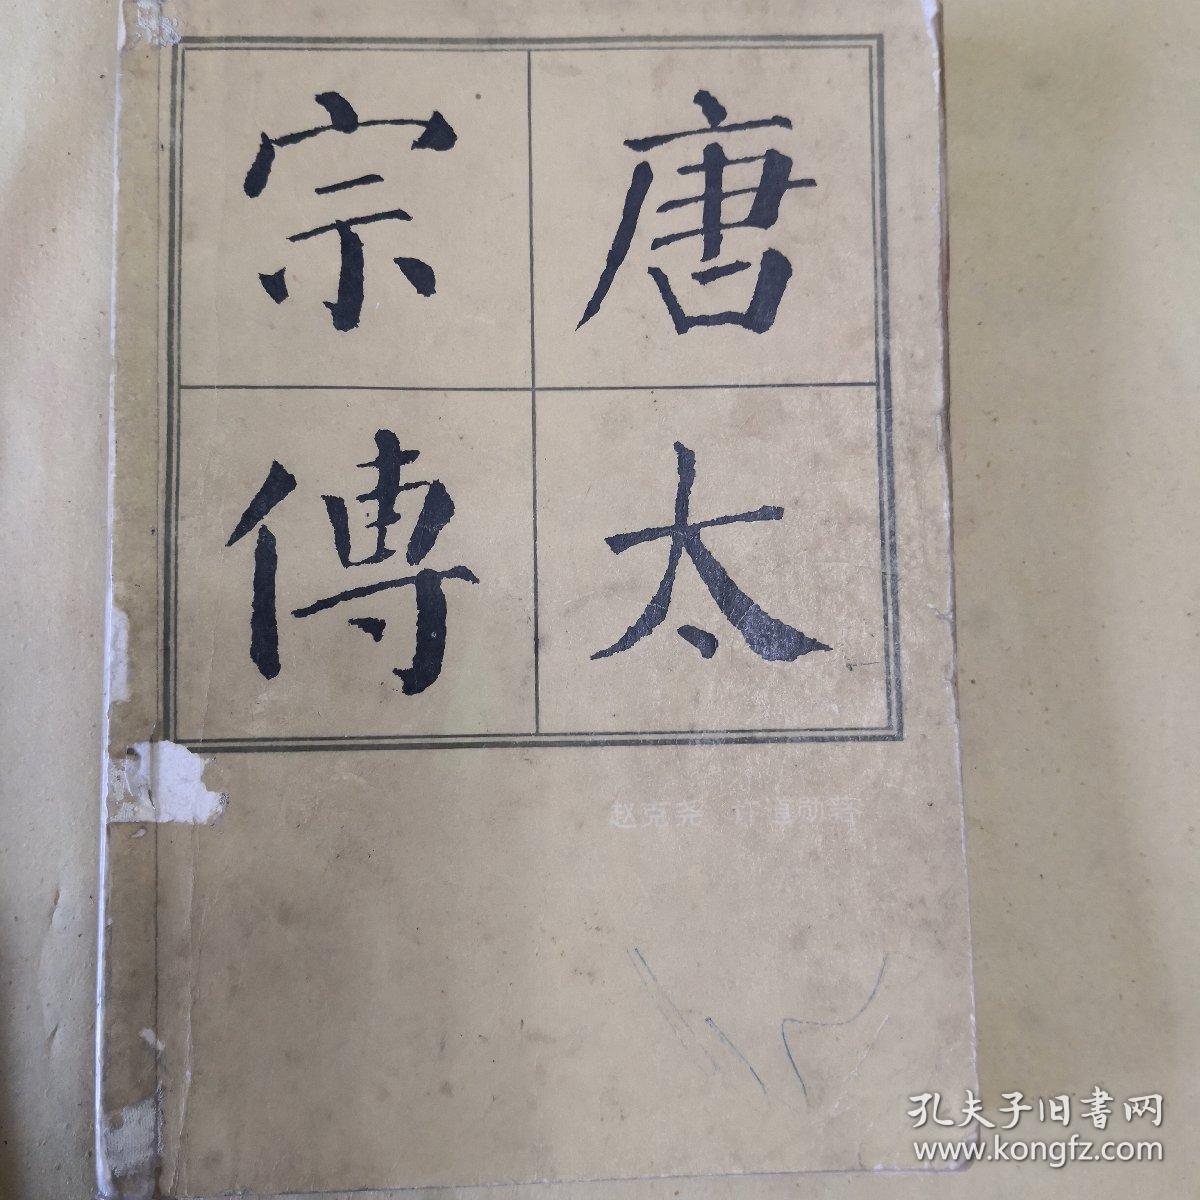 唐太
宗傳
赵克尧 许道勋著
孔夫子旧书网
www.kongfz.com